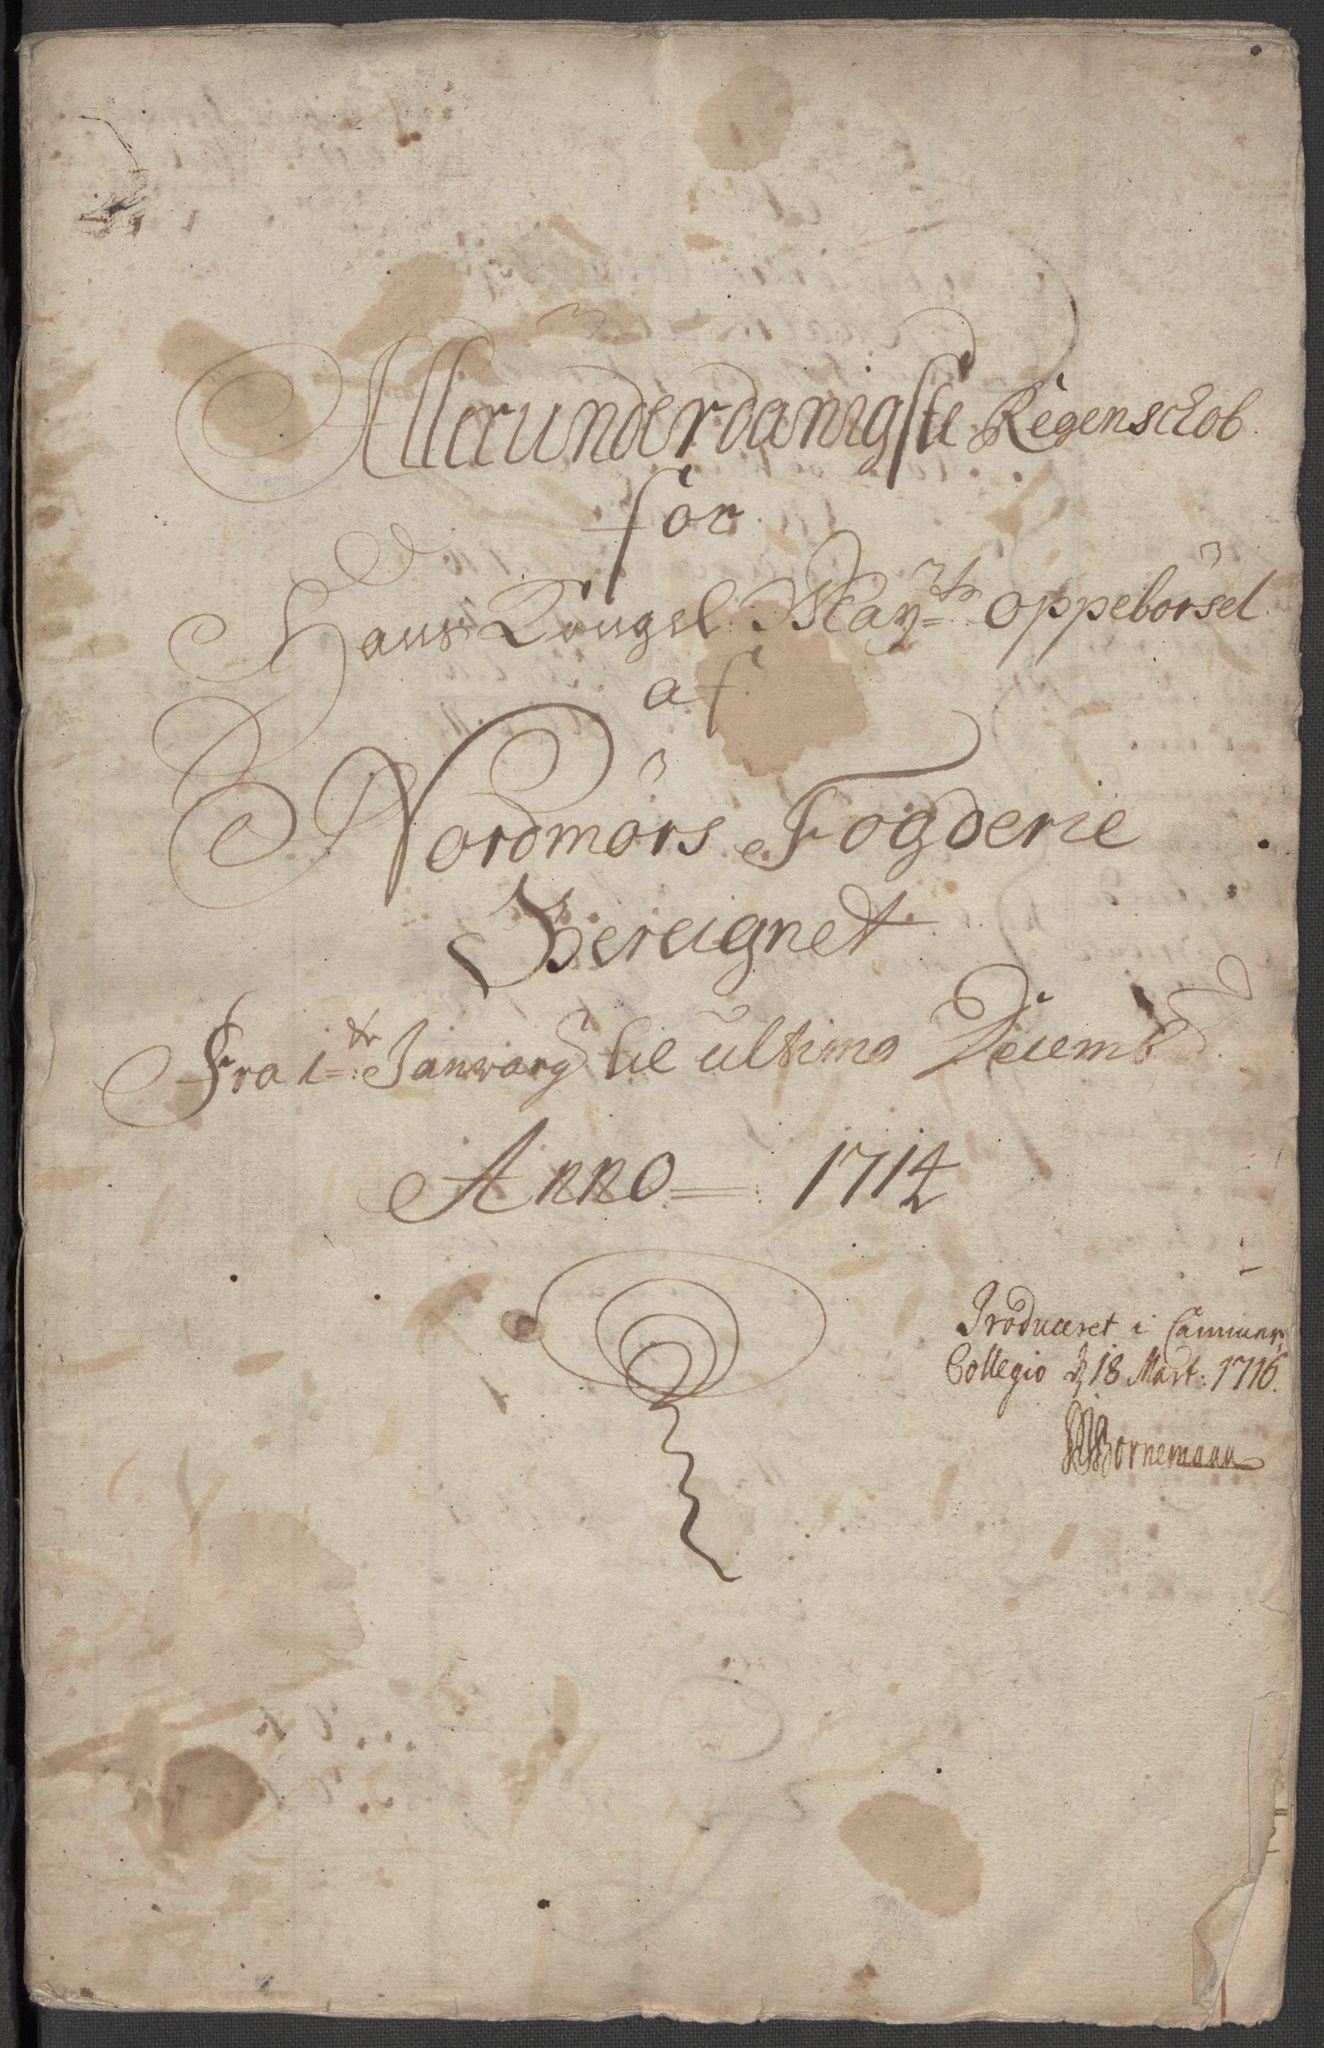 Allerunderdanigste Regenschob
for
Hans Kongel: May=ts Oppebörsel
af
Nordmörs Fogderie
Bereignet
Fra 1=te Januarÿ til ultimo Decembr
Anno = 1714
Produceret i Cammer
Collegio d 18 Mart: 1716.
Bornemann